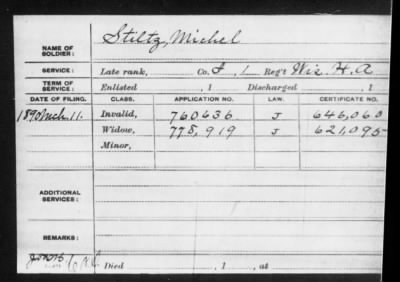 NAME OF SOLDIER: Stiltz, Michel
SERVICE: Late rank, Co. I, 1 Reg't Wis. H. A
TERM OF SERVICE: Enlisted , 1 Discharged , 1
DATE OF FILING. CLASS. APPLICATION NO. LAW. CERTIFICATE NO.
1890 Mch. 11. Invalid, 760636 J 646,060
Widow, 778,919 J 621,095
Minor,
ADDITIONAL SERVICES:
REMARKS:
Died , 1 , at